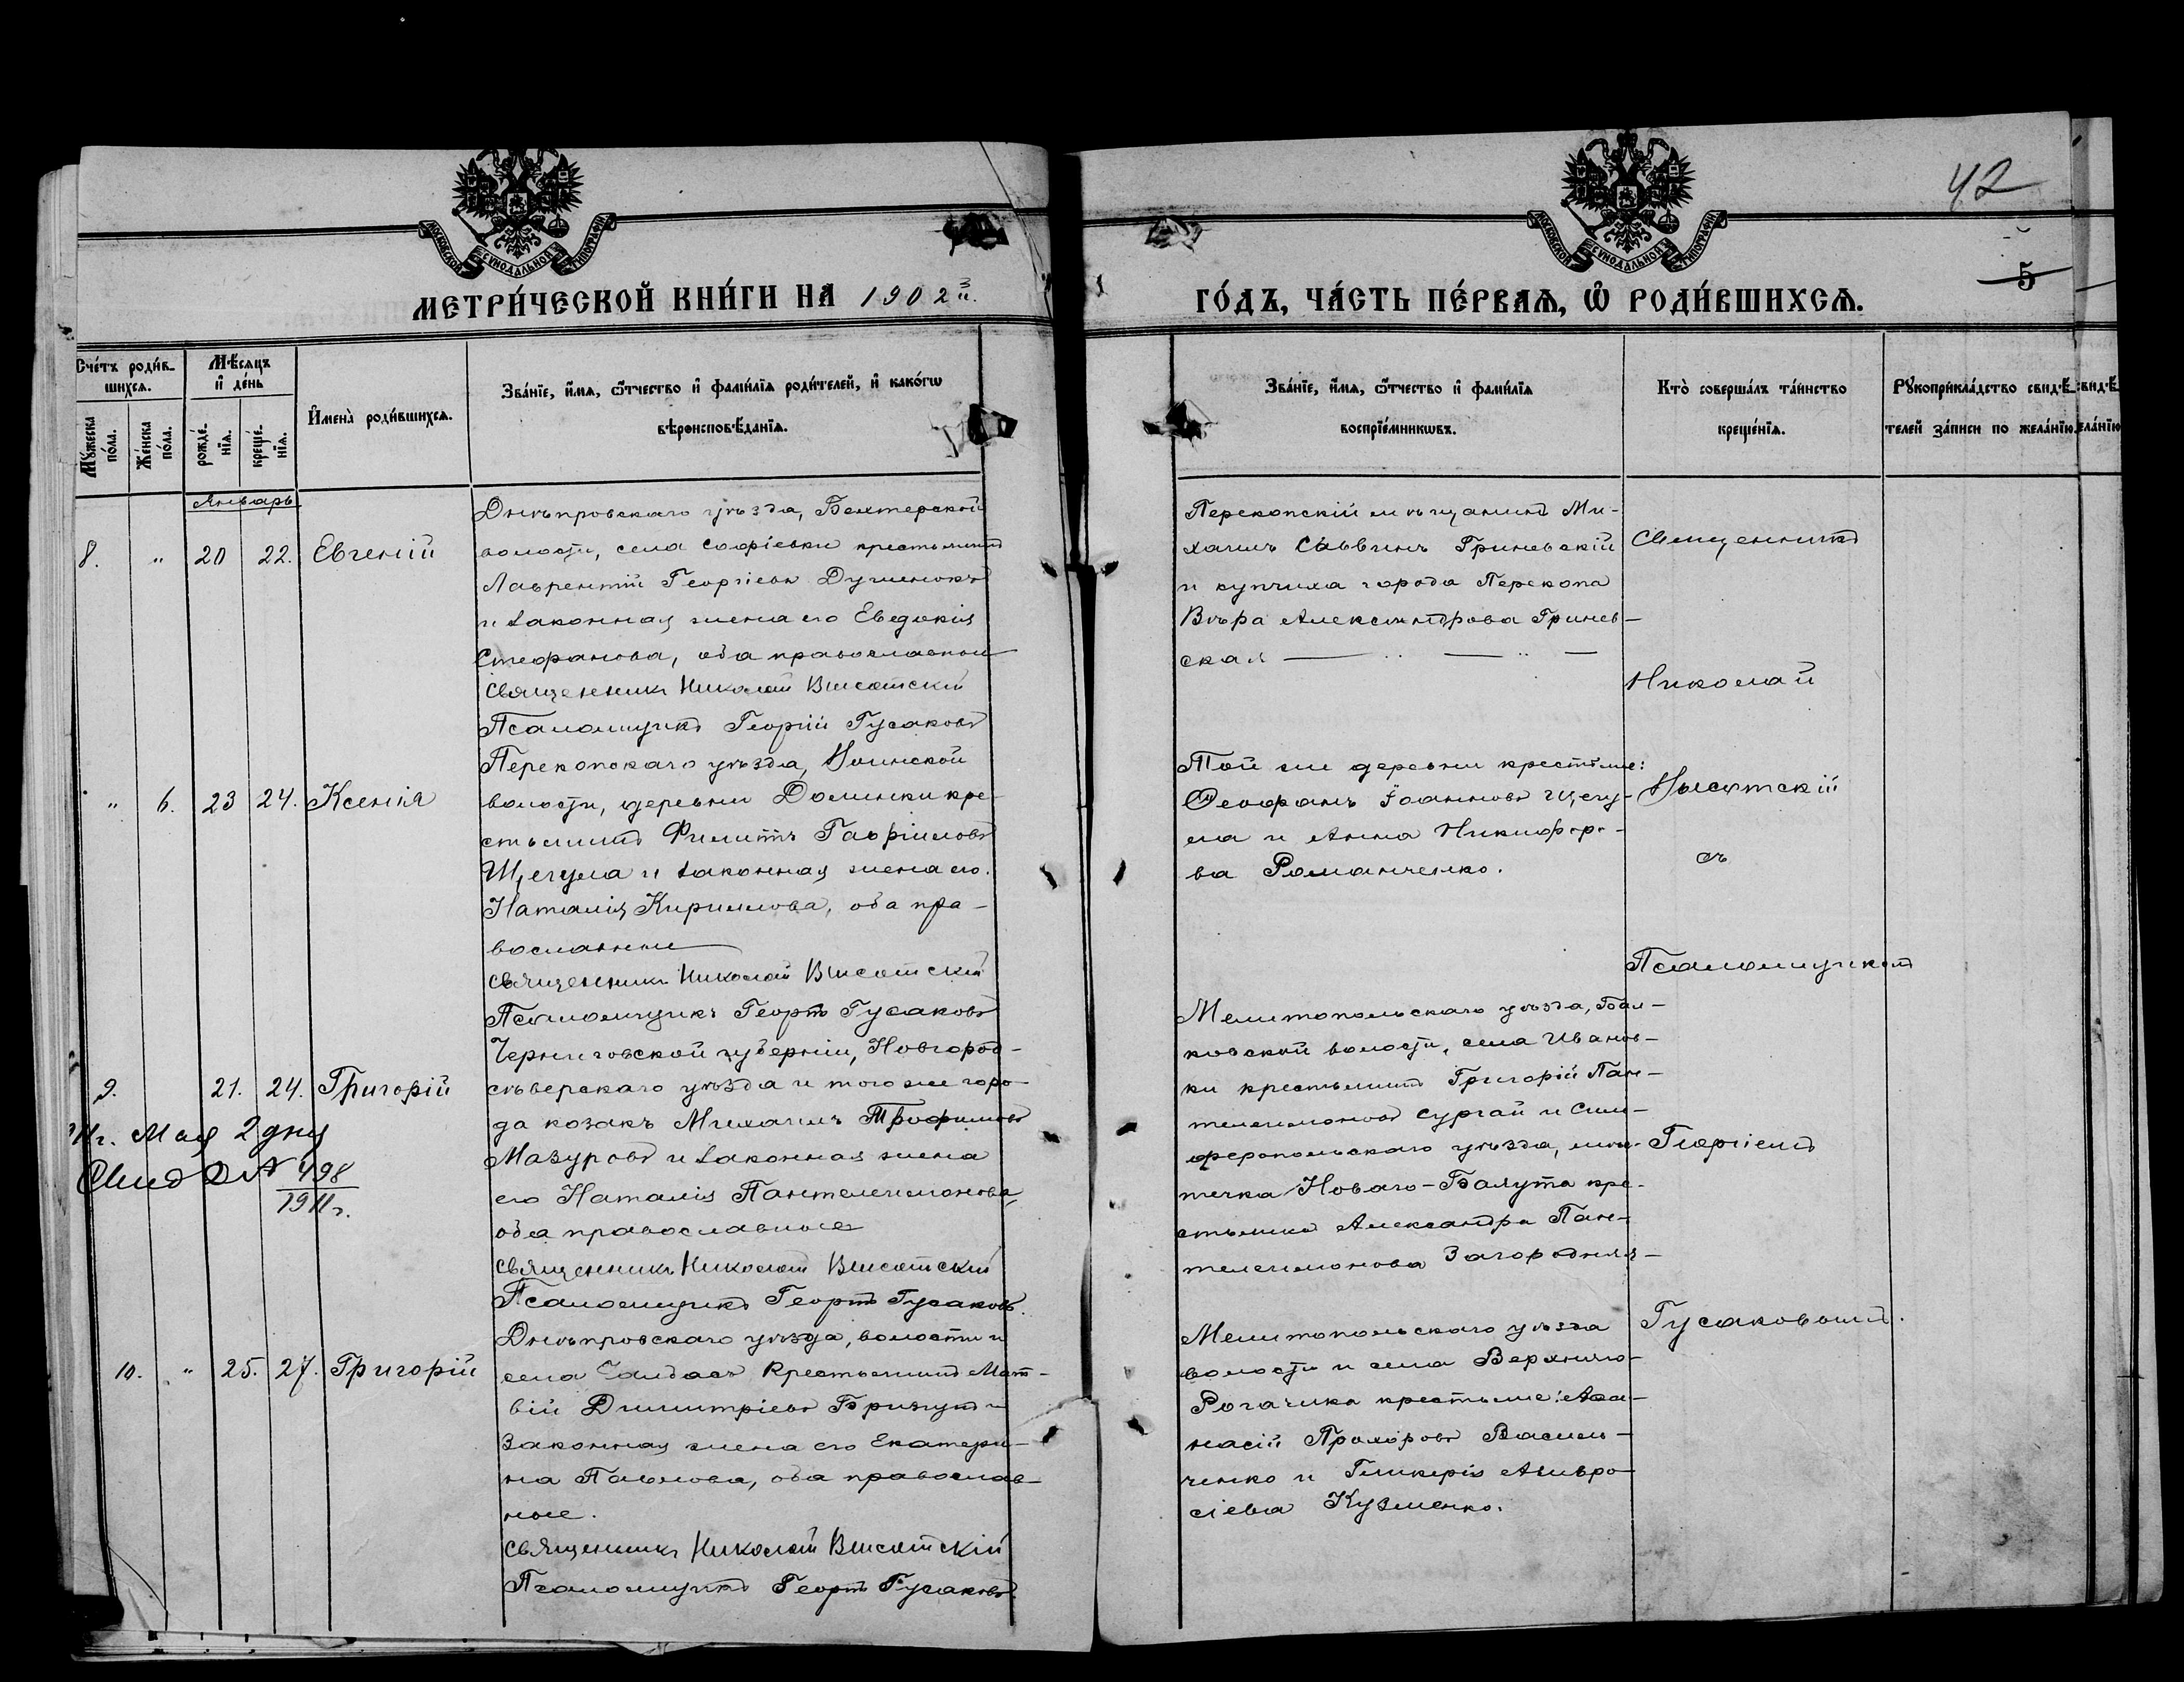 42
МОСКОВСКОЙ СУНОДАЛЬНОЙ ТИПОГРАФІИ
МОСКОВСКОЙ СУНОДАЛЬНОЙ ТИПОГРАФІИ
5
МЕТРИ́ЧЕСКОЙ КНИ́ГИ НА 1902
ГО́ДЪ, ЧА́СТЬ ПЕ́РВАѦ, Ѡ РОДИ́ВШИХСѦ.
Сче́тъ роди́вшихсѧ.
Мꙋжеска по́ла.
Же́нска по́ла.
Мѣ́сяцъ и де́нь
рожде́нїѧ.
креще́нїѧ.
И҆мена̀ роди́вшихсѧ.
Зва́нїе, и҆́мѧ, ѻ҆́тчество и҆ фами́лїѧ роди́телей, и҆ како́гѡ
вѣроисповѣ́данїѧ.
Зва́нїе, и҆́мѧ, ѻ҆́тчество и҆ фами́лїѧ
воспрїе́мникѡвъ.
Кто̀ соверша́лъ та́инство
креще́нїѧ.
Рꙋкоприкла́дство свидѣ́-
телей за́писи по жела́нїю.
Январь
8. " 20 22. Евгеній
Днѣпровскаго уѣзда, Бехтерской
волости, села Софіевки крестьянинъ
Лаврентій Георгіевъ
и законная жена его Евдокія
Стефанова, оба православные
Священникъ Николай Высотскій
Псаломщикъ Георгій Гусаковъ
Перекопскій мѣщанинъ Ми-
хаилъ Саввинъ Гриневскій
и купчиха города Перекопа
Вѣра Александрова Гринев-
ская
" 6. 23 24. Ксенія
Перекопскаго уѣзда, Воинской
волости, деревни Долинки кре-
стьянинъ Филиппъ Гавріиловъ
Щегула и законная жена его
Наталія Кириллова, оба пра-
вославные
Священникъ Николай Высотскій
Псаломщикъ Георгій Гусаковъ
Той же деревни крестьяне:
Ѳеофанъ Іоанновъ Щегу-
ла и Анна Никифоро-
ва Романченко.
9. 21. 24. Григорій
Черниговской губерніи, Новгород-
сѣверскаго уѣзда и того же горо-
да козакъ Михаилъ Трофимовъ
Мазуровъ и законная жена
его Наталія Пантелеимонова,
оба православные
Священникъ Николай Высотскій
Псаломщикъ Георгій Гусаковъ.
Мелитопольскаго уѣзда, Бал-
ковской волости, села Иванов-
ки крестьянинъ Григорій Пан-
телеимоновъ Сургай и Сим-
феропольскаго уѣзда, мѣс-
течка Новаго-
стьянка Александра Пан-
телеимонова Загородняя
11г. Мая 2 дня
Свид №
498
1911г.
10. " 25. 27. Григорій
Днѣпровскаго уѣзда, волости и
села крестьянинъ Мат-
вій Димитріевъ и
законная жена его Екатери-
на Павлова, оба православ-
ные.
Священникъ Николай Высотскій
Псаломщикъ Георгій Гусаковъ.
Мелитопольскаго уѣзда
волости и села Верхняго-
Рогачика крестьяне: Аѳа-
насій Прохоровъ Василь-
ченко и Гликерія Амвро-
сіева Кузменко.
Священникъ
Николай
Высотскій
съ
Псаломщикомъ
Георгіемъ
Гусаковымъ.